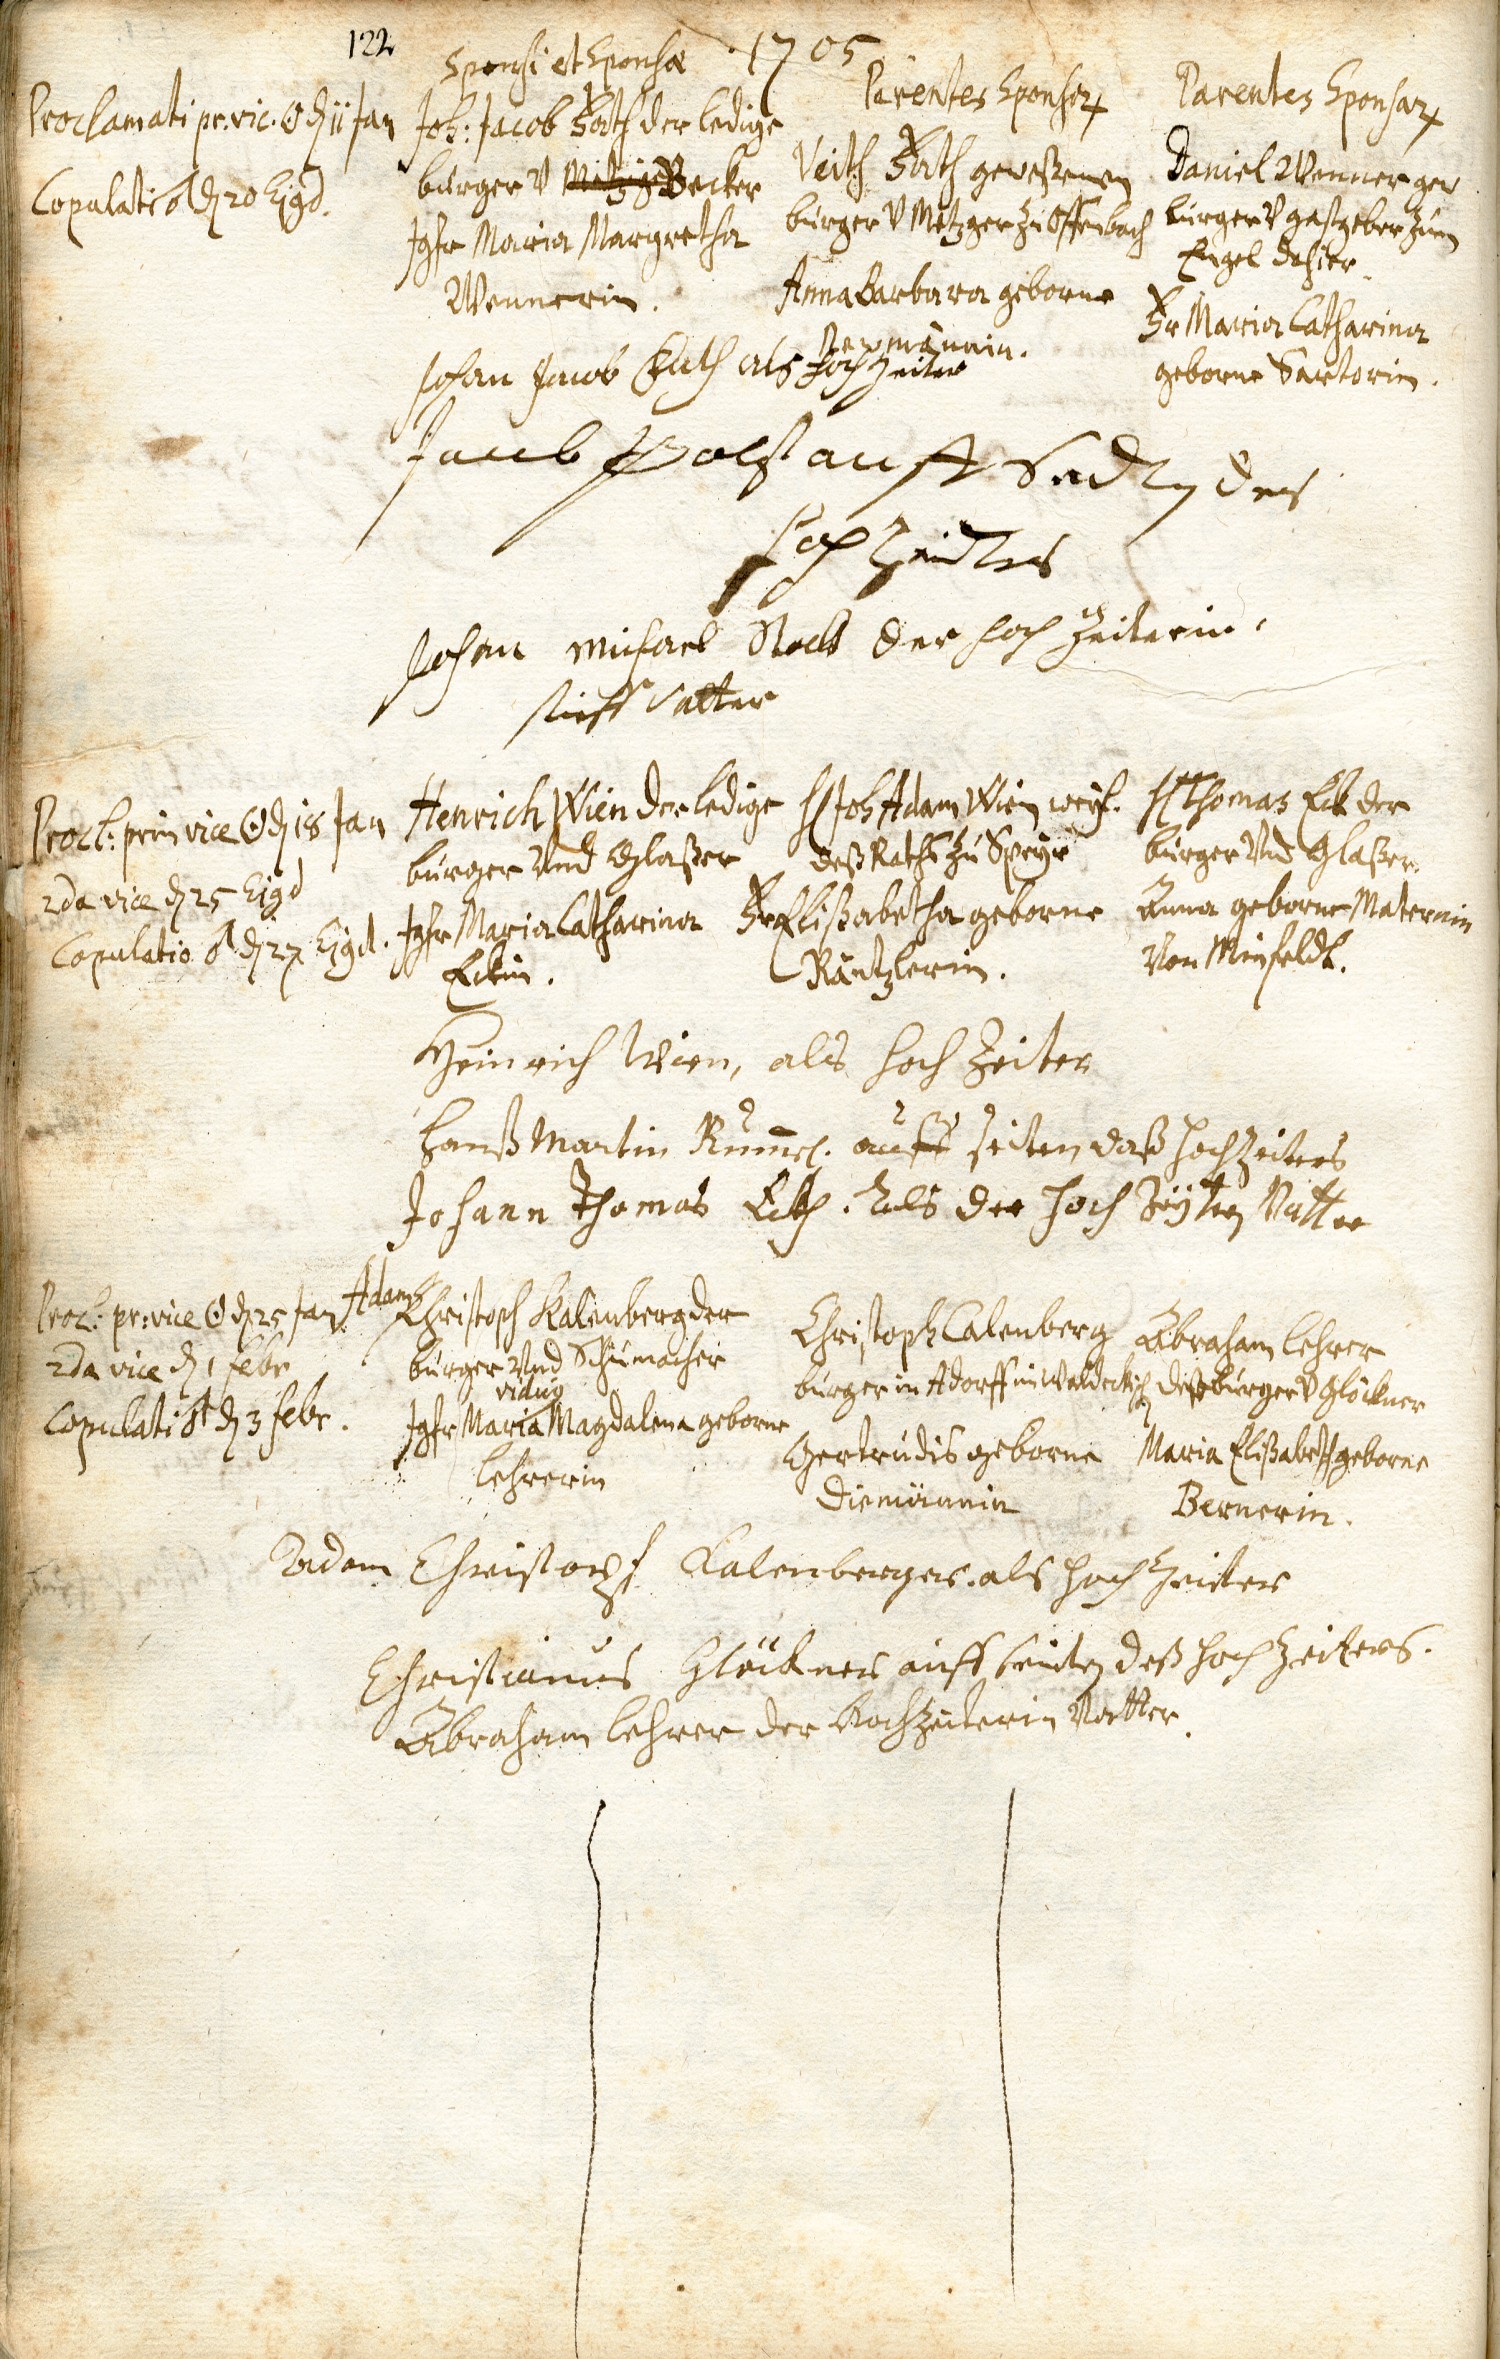 122
Sponsi et Sponsae 1705
Parentes Sponsor
Parentes Sponsar
Proclamati pr. vic. ☉ d 11 Jan
Copulati ♂ d 20 Ejgd.
Joh: Jacob Fath der ledige
burger V Metzger Becker
Jgfr Maria Margretha
Wennerin.
Veith Fath geweßenen
burger V Metzger zu Offenbach
Anna Barbara geborne
Newmännin.
Daniel Wenner gew
burger V gastgeber zum
Engel dahier
Fr Maria Catharina
geborne Sartorin.
Johan Jacob Fath als Hochzeiter
Jacob auff Seidten des
Hochzeidters
Johan Michael Stock der Hochzeiterin
stieff Vatter
Procl: prim vice ☉ d 18 Jan
2da vice d 25 Ejgd
Copulatio ♂ d 27 Ejgd.
Henrich Wien der ledige
burger Vnd Glaßer
Jgfr Maria Catharina
Eckin.
H Joh Adam Wien
deß Raths zu Speyr
Fr Elißabetha geborne
Räntzlerin.
H Thomas Eck der
burger Vnd Glaßer.
Anna geborne Maternin
Von Minfeldt.
Heinrich Wien, als Hochzeiter
Hanß Martin auff seiten deß Hochzeiters
Johann Thomas Eckh. als der Hochzeyterin Vatter
Procl: pr: vice ☉ d 25 Jan
2da vice d 1 febr
Copulati ♂ d 3 febr.
Adam
Christoph Kalenberg der
burger Vnd Schumacher
vidua
Jgfr Maria Magdalena geborne
Lehrerin
Christoph Calenberg
burger in Adorff im Waldeckisch
Gertrudis geborne
Diemännin
Abraham Lehrer
burger V Glöckner
Maria Elißabeth geborne
Bernerin.
Adam Christoph Kalenberger als Hochzeiter
Christianus Glöckner auff seiten deß Hochzeiters.
Abraham Lehrer der Hochzeiterin Vatter.